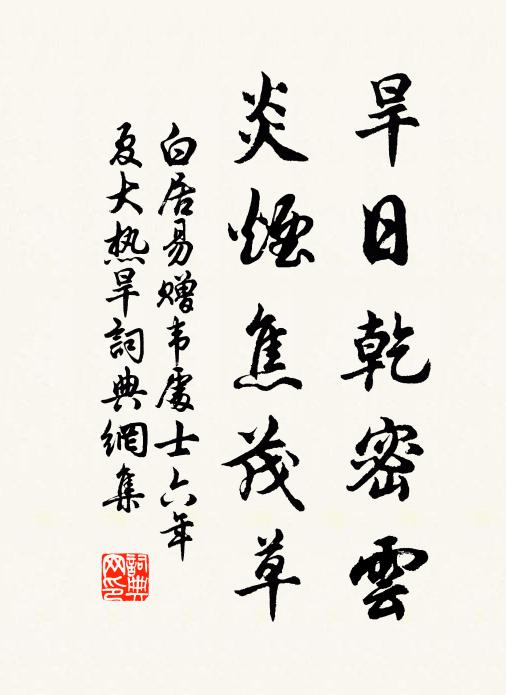 旱日乾密雲
炎煙焦茂草
白居易贈韦處士六年
夏大热旱詞典網集
詞典網印